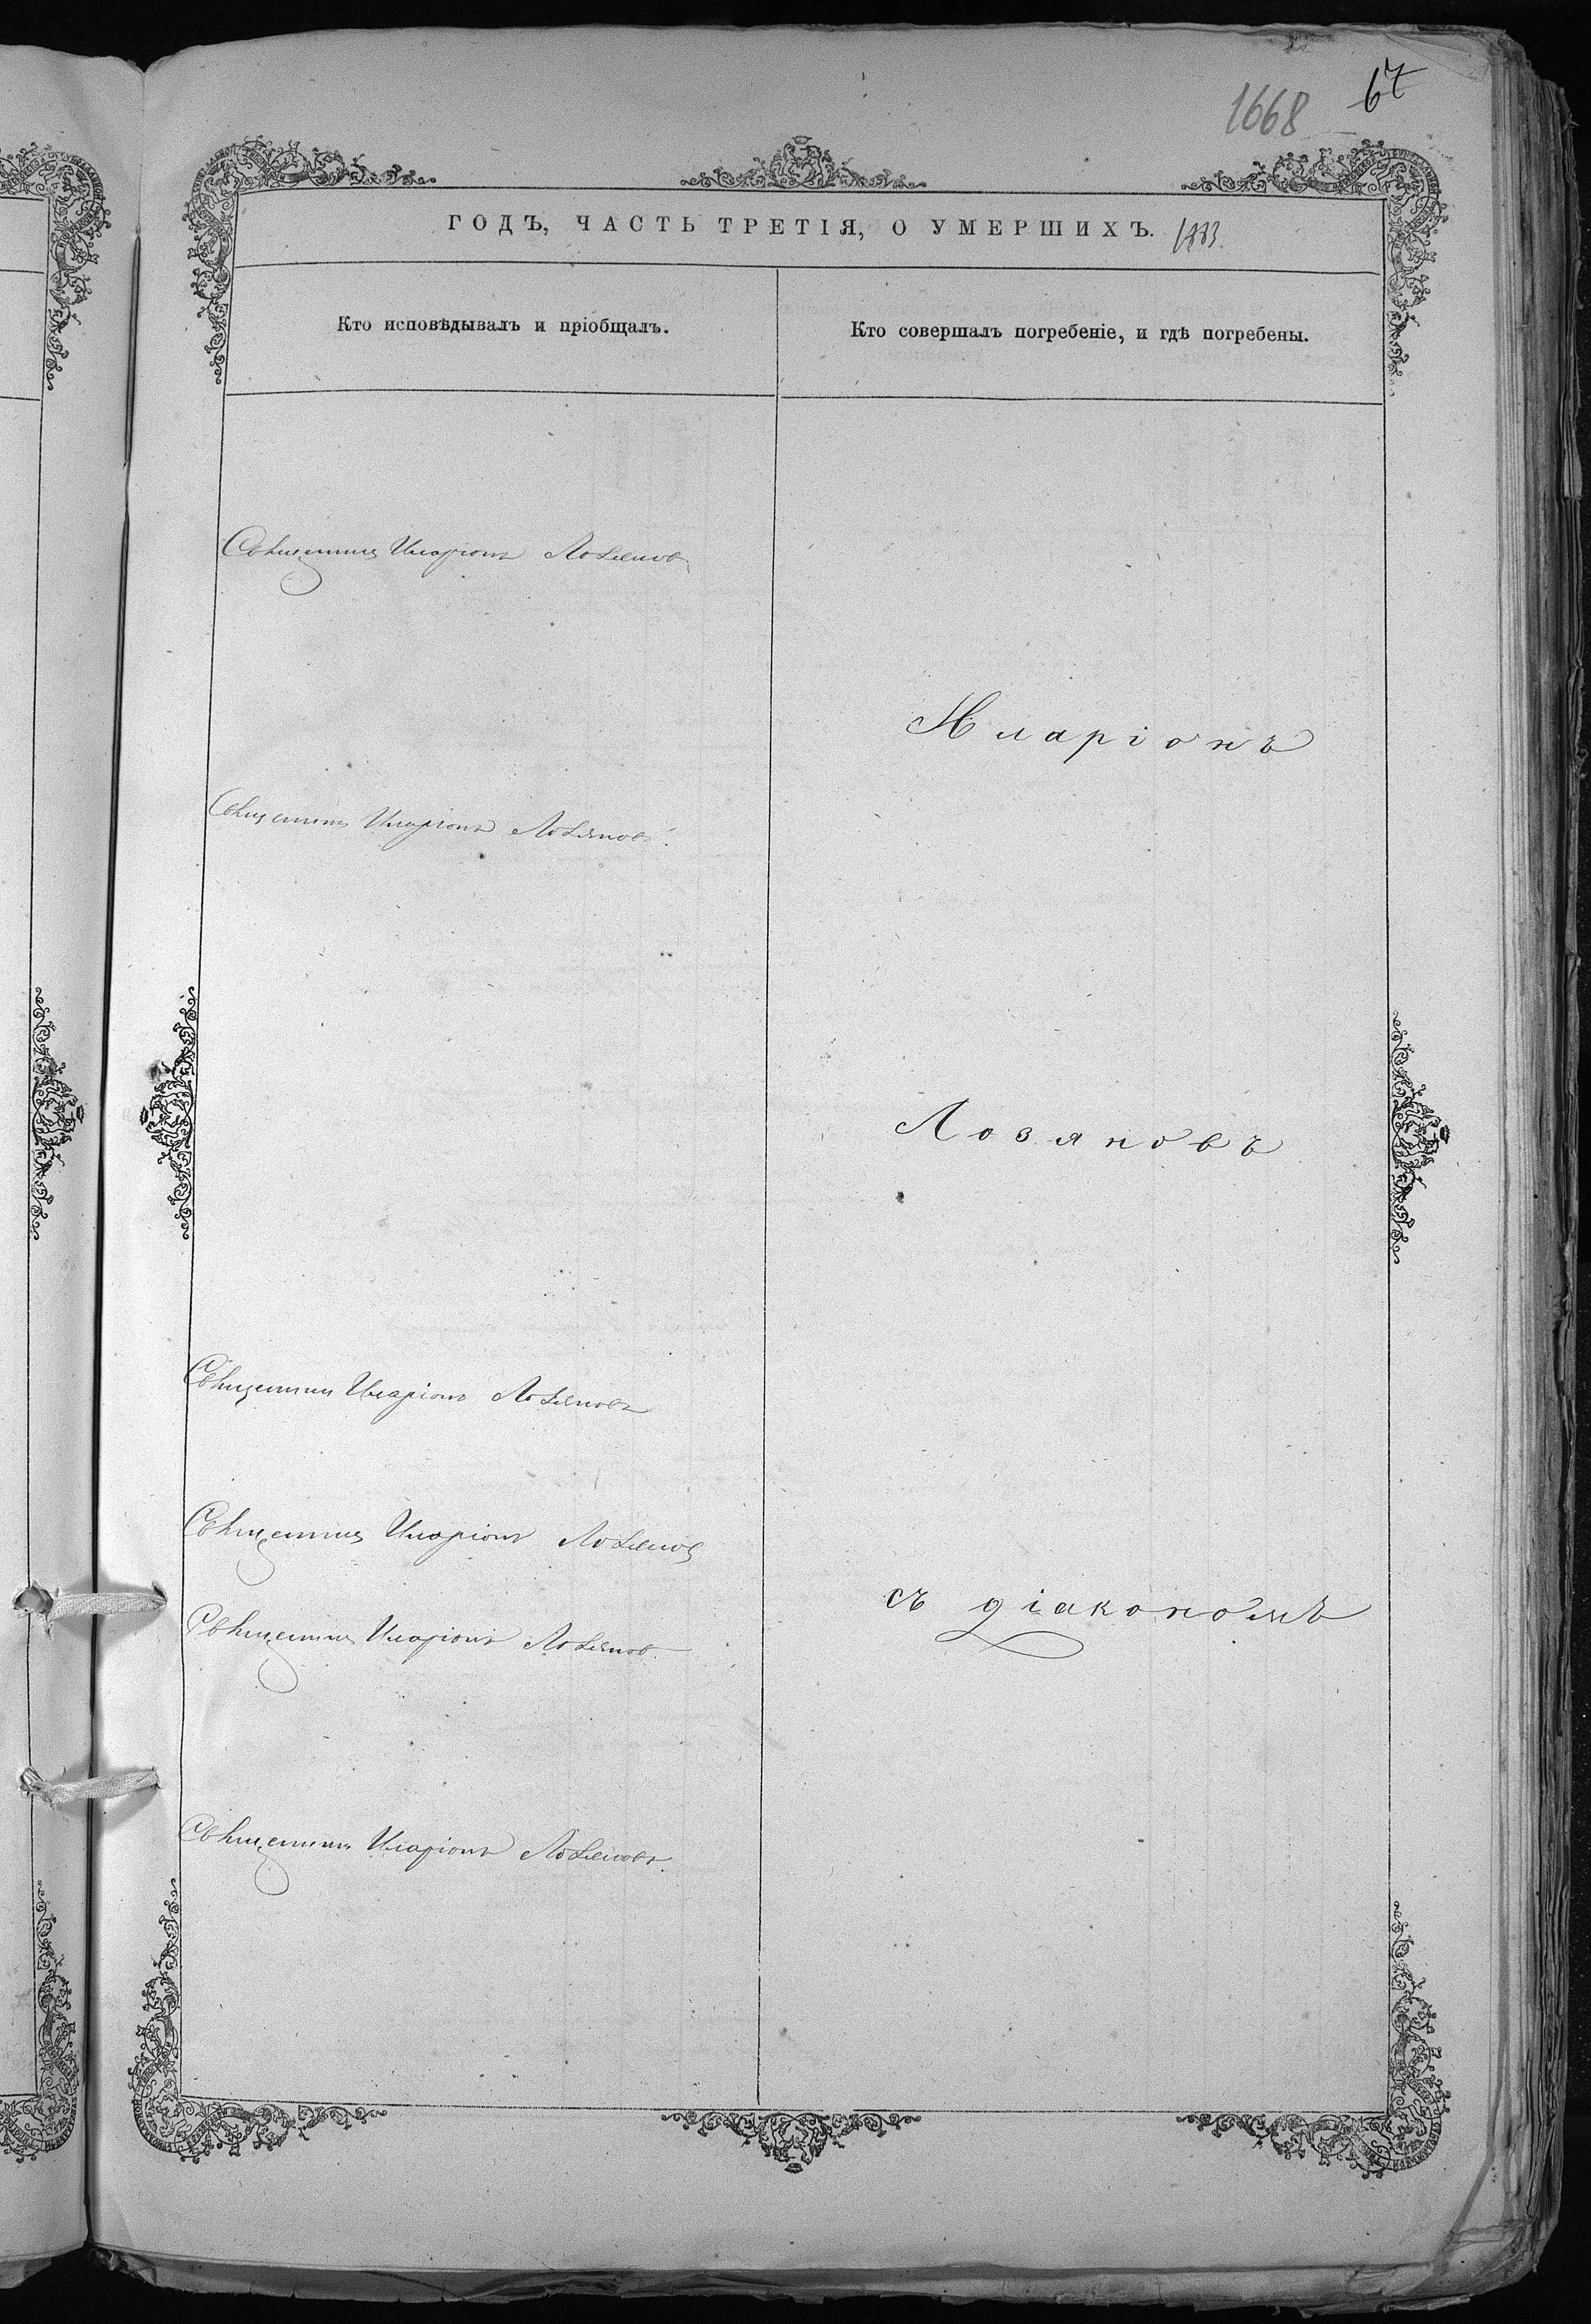 1668 67
ГОДЪ, ЧАСТЬ ТРЕТІЯ, О УМЕРШИХЪ. 1883.
Кто исповѣдывалъ и пріобщалъ.
Кто совершалъ погребеніе, и гдѣ погребены.
Священникъ Иларіонъ Лозяновъ
Священникъ Иларіонъ Лозяновъ.
Священникъ Иларіонъ Лозяновъ
Священникъ Иларіонъ Лозяновъ
Священникъ Иларіонъ Лозяновъ
Священникъ Иларіонъ Лозяновъ.
Иларіонъ
Лозяновъ
съ діакономъ